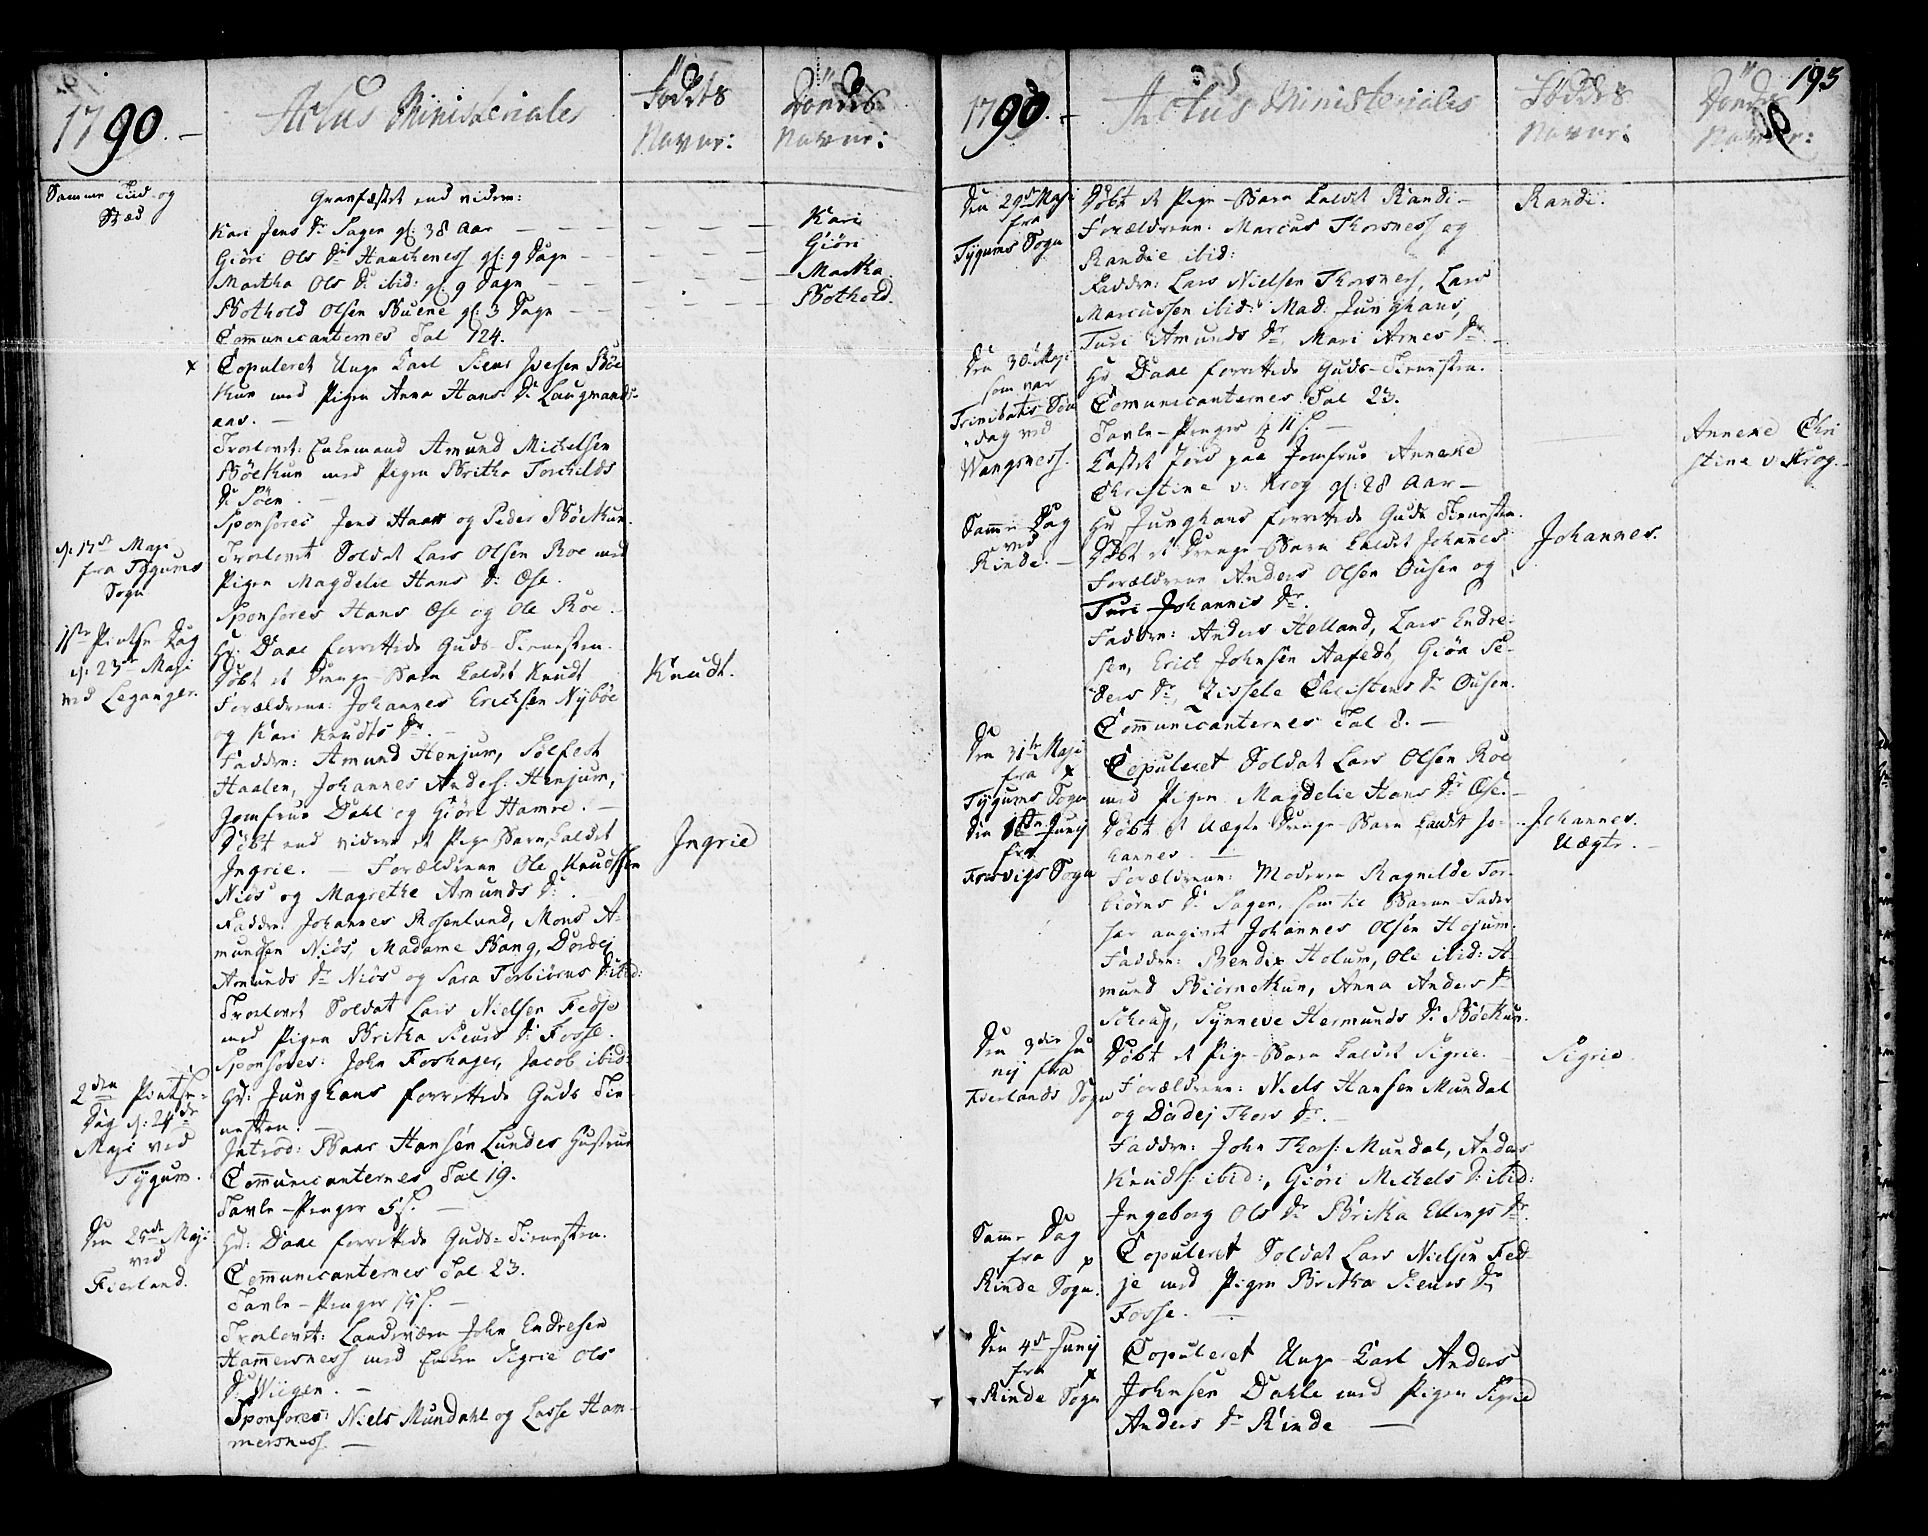 1790. –
Actus Ministeriales
Fødtes Navne:
Dødes Navne:
Samme Tiid og
Stæd
Gravfæstet end videre:
Kari Jens Dr Sagen gl: 38 Aar – – – – – – Kari
Giøri Ols Dr Hancheness gl: 9 Dage – – – – – Giøri
Martha Ols Dr ibid: gl 9 Dage – – – – Martha
Bothold Olsen Buene gl: 3 Dage – – – – Bothold.
Communicanternes Tal 124.
x Copuleret Unge Karl Siur Iversen Bøe
Kun med Pigen Anna Hans Dr Laugmands-
aas. –
Trolovet: Enkemand Amund Michelsen
Bøetkun med Pigen Britha Torchilds
Dr Söen. –
Sponsores Jens Haar og Peder Böetkun.
d: 17de Maji
fra Tygums
Sogn
Trolovet Soldat Lars Olsen Roe med
Pigen Magdelie Hans Dr Ese.
Sponsores Hans Ese og Ole Roe.
1ste Pintse Dag
d: 23de Maji
ved Leganger.
Hr: Daae forrettede Guds-Tienesten.
Døbt et Drenge-Barn kaldet Knudt
Knudt.
Forældrene: Johannes Erichsen Nybøe
og Kari Knudts Dr. –
Faddere: Amund Henjum, Solfest
Haalen, Johannes Anders: Henjum,
Jomfrue Dahl og Giøri Hamre. –
Døbt end videre et Pige Barn, kaldet
Ingrie
Ingrie. – Forældrene Ole Knudssen
Niös og Magrethe Amunds Dr.
Faddere: Johannes Rosenlund, Mons A-
mundsen Niös, Madame Bang, Dordej
Amunds Dr Niös og Sara Torbiörns Dr ibid:
Trolovet Soldat Lars Nielsen Fedje
med Pigen Britha Siurs Dr Fosse.
Sponsores: John Foshager, Jacob ibid:
2den Pintse-
Dag d: 24de
Maji ved
Tygum.
Hr: Junghans forrettede Guds Tie-
nesten. –
Introd: Baar Hansen Lundes Hustrue
Communicanternes Tal 19.
Tavle-Penger 5 s. –
Den 25de Maji
ved
Fierland.
Hr: Daae forrettede Guds-Tienesten.
Communicanternes Tal 23.
Tavle-Penger 15 s. –
Trolovet: Landværn John Endresen
Hammersness med Enken Sigrie Ols
Dr Wiigen. –
Sponsores: Niels Mundahl og Lasse Ham-
mersness. –
195
1790. –
Actus Ministeriales
Fødtes Navne:
Dødes Navne:
Den 29de Maji
fra
Tygums Sogn
Døbt et Pige-Barn kaldet Randi –
Randi.
Forældrene: Marcus Thorsness og
Randie ibid:
Faddere: Lars Nielsen Thorsness, Lars
Marcussen ibid: Mad: Junghans,
Turi Amunds Dr, Mari Arnes Dr. –
Den 30de Maji
som var
Trinitatis Søn
dag ved
Wangsness.
Hr Daae forrettede Guds-Tienesten.
Communicanternes Tal 23.
Tavle-Penger 11 s. –
Kastet Jord paa Jomfrue Anneke
Christine v: Krog gl: 28 Aar –
Anneke Chri
stine v. Krog. –
Samme Dag
ved
Rinde. –
Hr Junghans forrettede Guds Tienesten.
Døbt et Drenge-Barn kaldet Johannes
Johannes.
Forældrene Anders Olsen Ousen og
Turi Johannis Dr.
Faddere: Anders Helland, Lars Endre-
sen, Erich Johnsen Aafedt, Giöa Pe-
ders Dr, Zissele Christens Dr Ousen.
Communicanternes Tal 8. –
Den 31te Maji
fra x
Tygums Sogn
Copuleret Soldat Lars Olsen Roe
med Pigen Magdelie Hans Dr Ese. –
Den 1ste Junij
fra
Froesvigs Sogn
Døbt et Uægte Drenge-Barn kaldet Jo-
hannes. –
Johannes.
Uægte. –
Forældrene: Moderen Ragnilde Tor-
biörns Dr Sagen, som til Barne-Fader
har angivet Johannes Olsen Hojum.
Faddere: Bendix Holum, Ole ibid: A-
mund Biörnetkun, Anna Anders Dr
Schoug, Synneve Hermunds Dr Böetkun.
Den 3die Ju
nij fra
Fierlands Sogn
Døbt et Pige-Barn kaldet Sigrie. –
Sigrie.
Forældrene: Niels Hansen Mundal
og Dädej Thors Dr. –
Faddere: John Thors: Mundal, Anders
Knuds: ibid:, Giöri Michels Dr ibid:
Ingeborg Ols Dr Britha Ellings Dr.
Samme Dag
fra x
Rinde Sogn.
Copuleret Soldat Lars Nielsen Fed-
je med Pigen Britha Siurs Dr
Fosse. –
Den 4de Junij
fra x
Rinde Sogn
Copuleret Unge Karl Anders
Johnsen Dahle med Pigen Sigrid
Anders Dr Rinde –